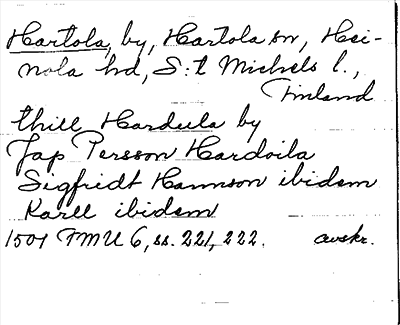 Hartola, by, Hartola sn, Hei-
nola hd, S:t Michels l.,
Finland
thill Hardula by
Jap Persson Hardoila
Sigfridt Hannson ibidem
Karll ibidem
1501 FMU 6, ss. 221, 222. avskr.